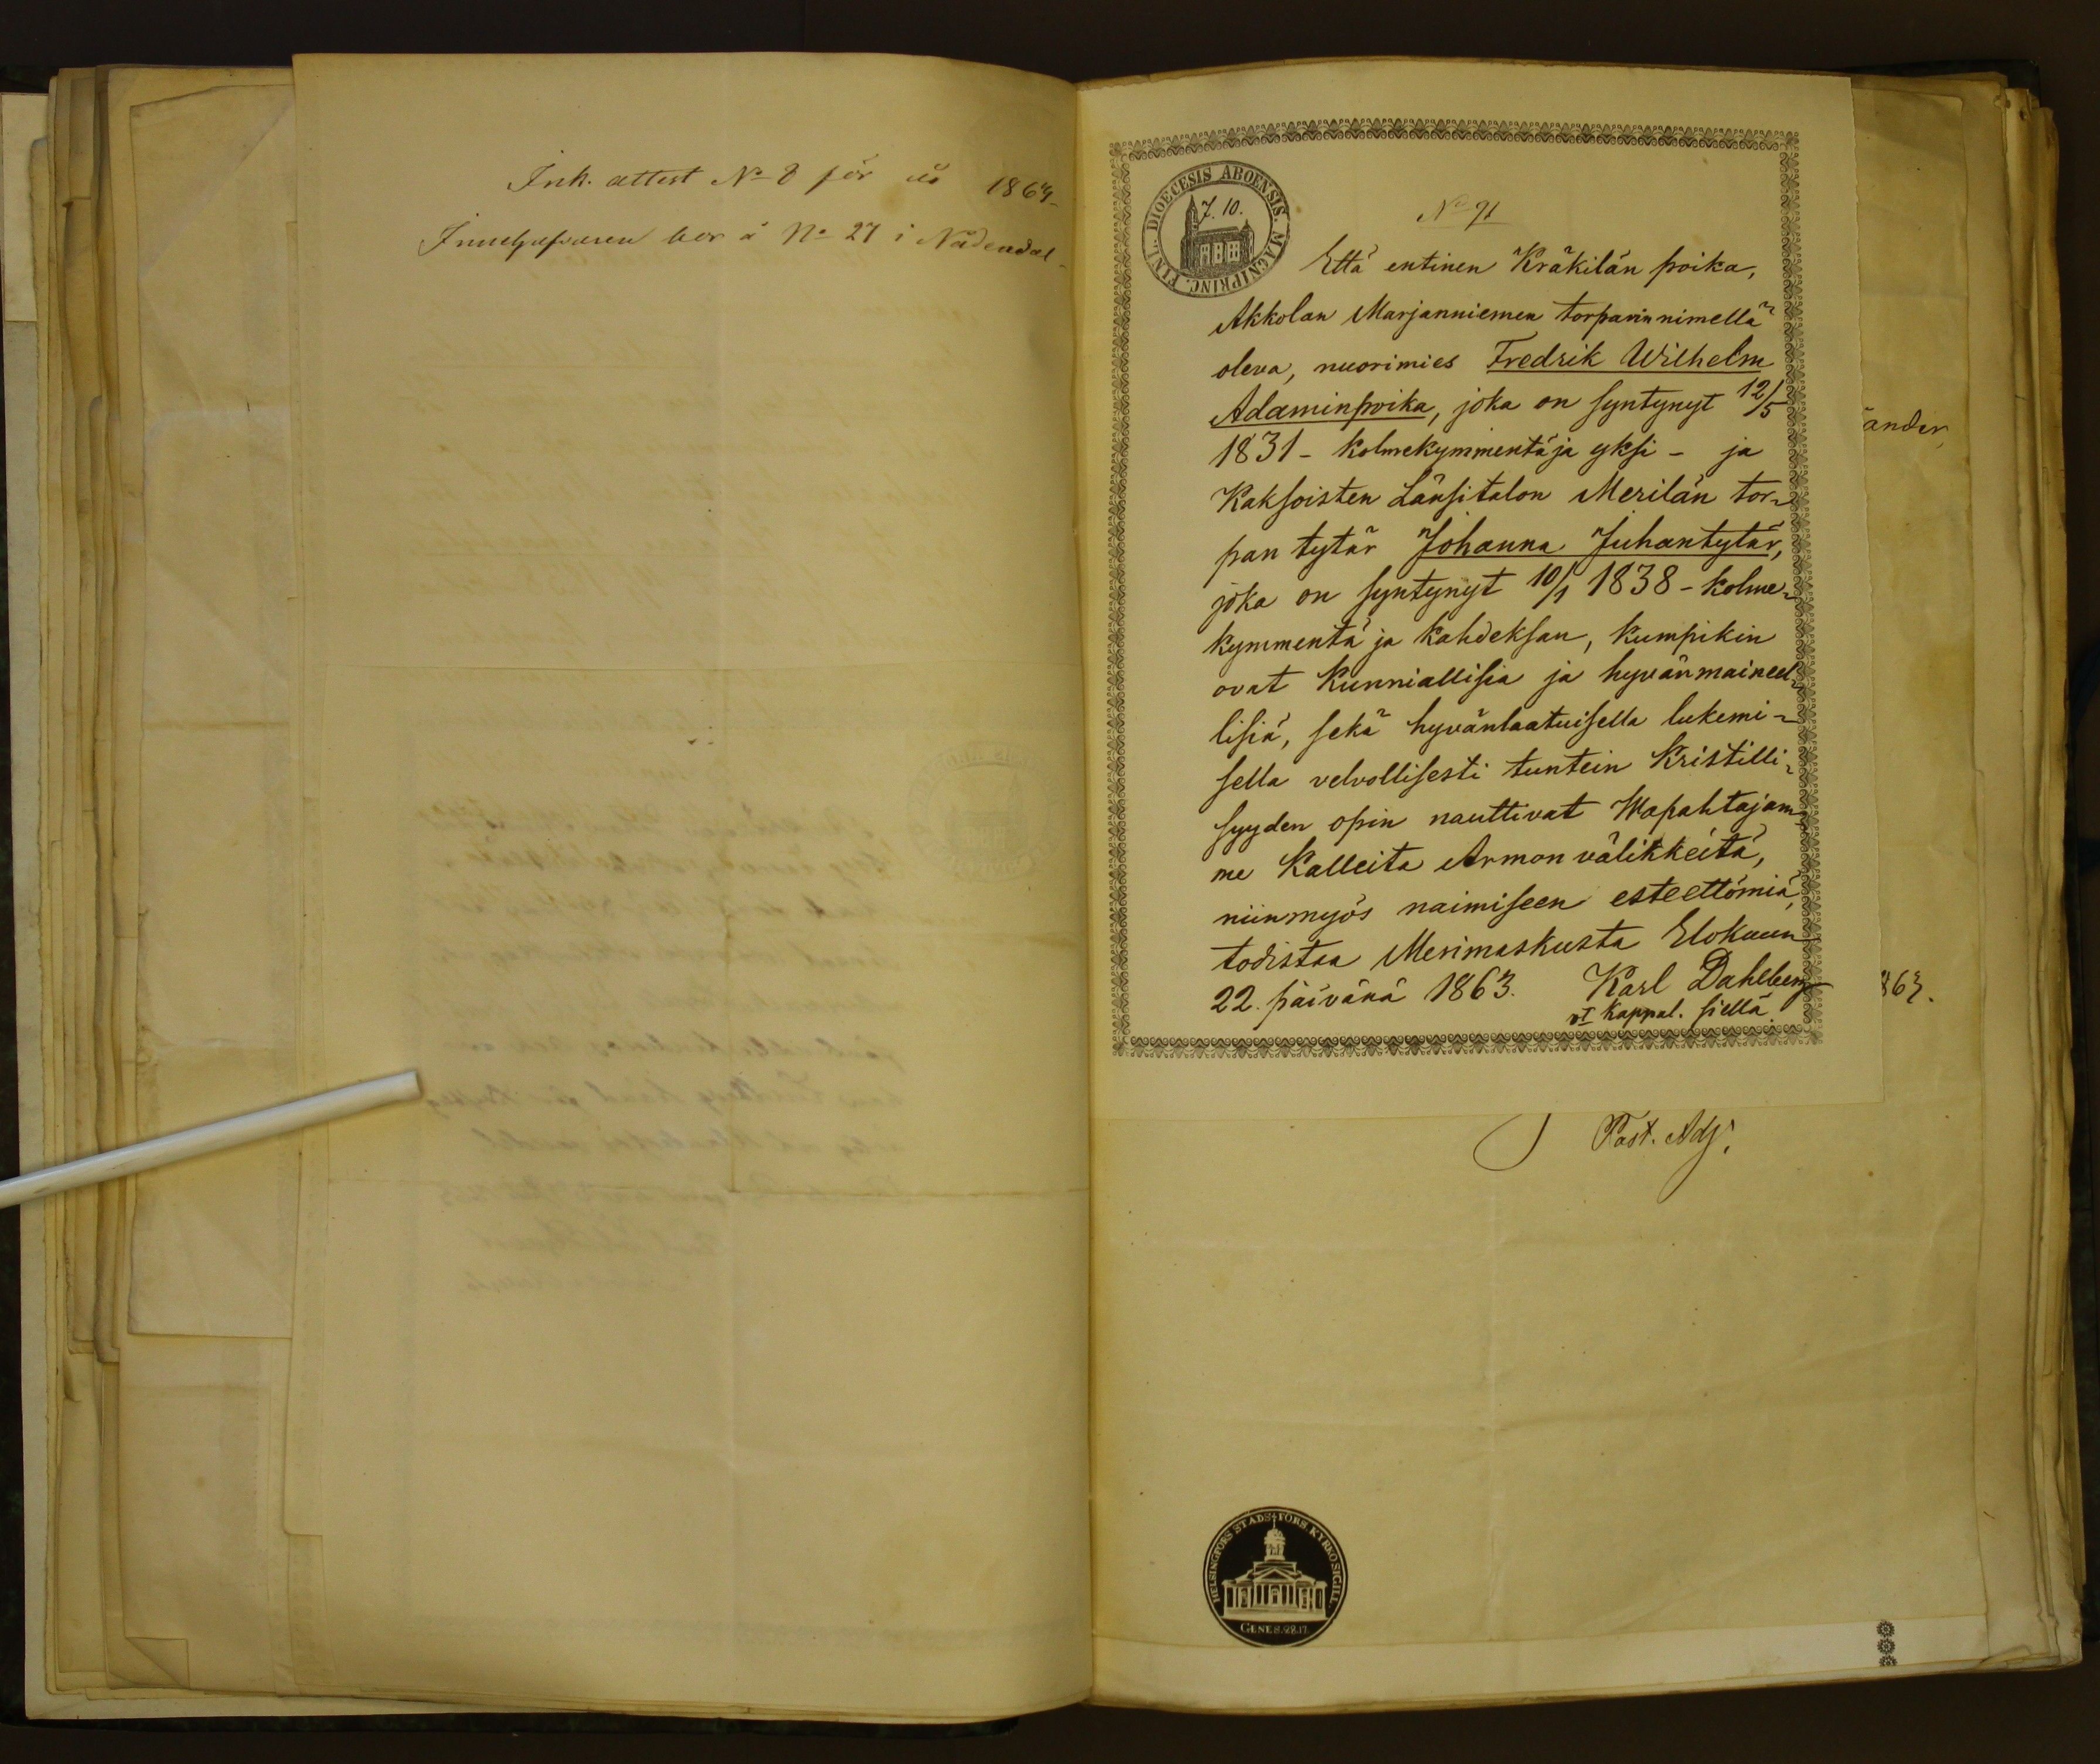 Inh. attest No 8 för år 1864
Innehafvaren bor å No 27 i Nådendal
FINL. DIOECESIS ABOENSIS. MAGNIPRINC.
J. 10.
No 91
Että entinen Kräkilän poika,
Akkolan Marjanniemen torparin nimellä
oleva, nuorimies Fredrik Wilhelm
Adaminpoika, joka on syntynyt 12/5
1831 - kolmekymmentä ja yksi - ja
Kaksoisten Länsitalon Merilän tor-
pan tytär Johanna Juhantytär,
joka on syntynyt 10/1 1838 - kolme-
kymmentä ja kahdeksan, kumpikin
ovat kunniallisia ja hyvänmaineel-
lisiä, sekä hyvänlaatuisella lukemi-
sella velvollisesti tuntein Kristilli-
syyden opin nauttivat Wapahtajam-
me Kalleita Armon välikkeitä,
niinmyös naimiseen esteettömiä,
todistaa Merimaskusta Elokuun
22. päivänä 1863. Karl Dahlberg
vt Kappal. siellä.
änder,
863.
Past. Adj.
HELSINGFORS STADS FÖRS. KYRKO SIGILL
GENES. 28. 17.